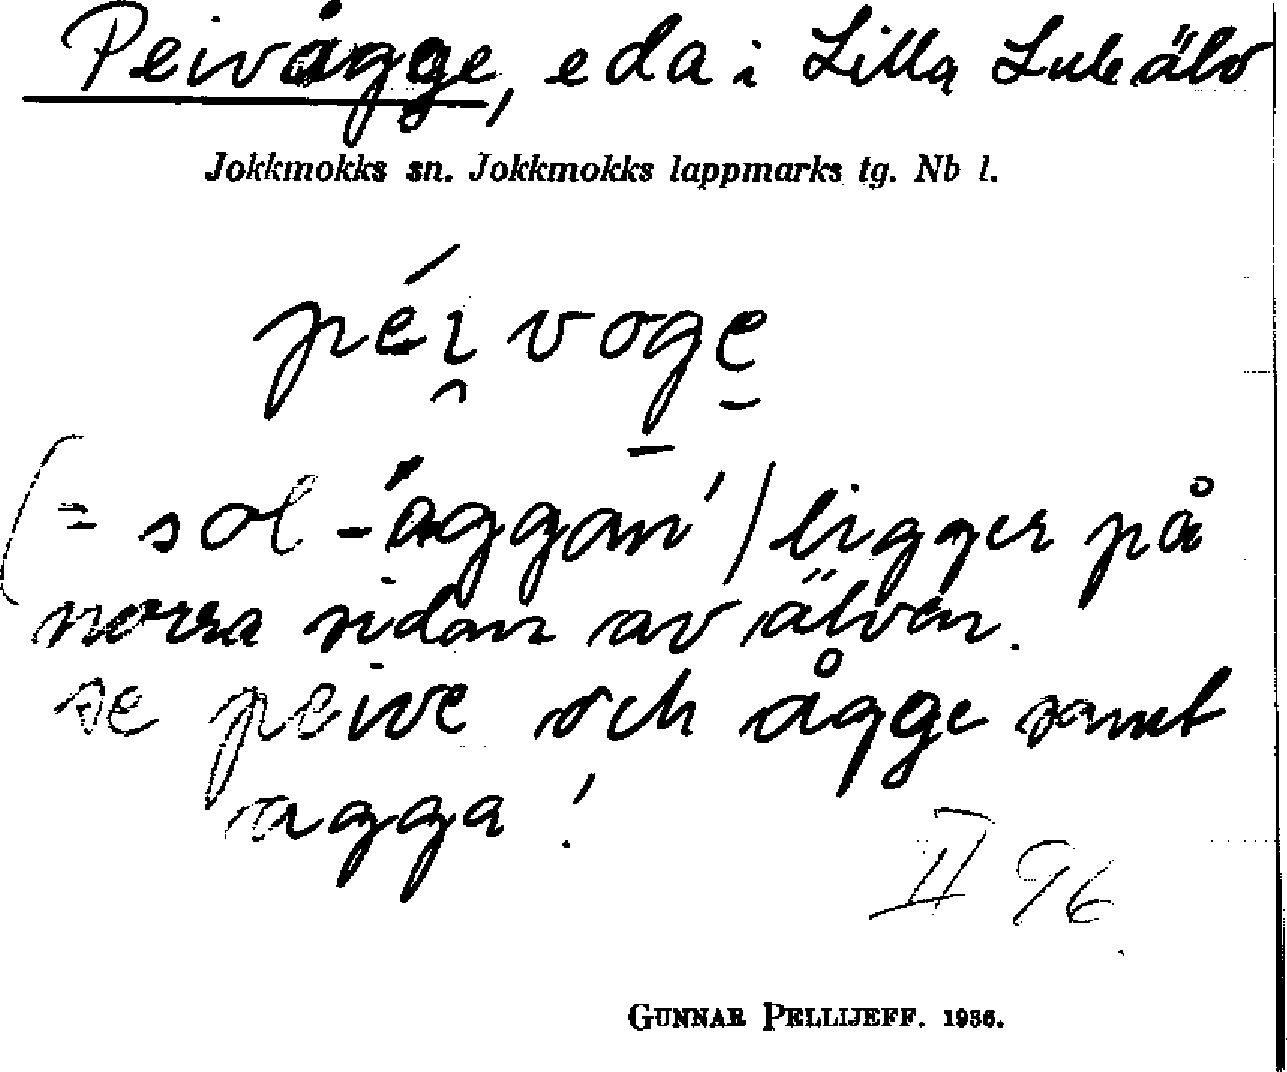 Peivågge, eda i Lilla Luleälv
Jokkmokks sn. Jokkmokks lappmarks tg. Nb l.
péi̯ voge̱
(= sol-'aggan') ligger på
norra sidan av älven.
se peive och ågge samt
agga!
II 96
GUNNAR PELLIJEFF. 1936.